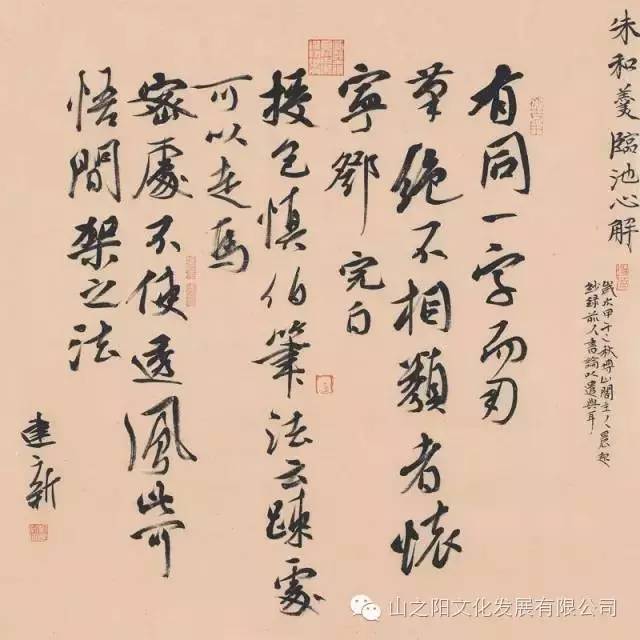 朱和羹臨池心解
歲次甲午之秋博山閣主人晨起
鈔錄前人書論以遣興耳
有同一字而刃
筆絕不相類者懷
寧鄧完白
授包慎伯筆法云疎處
可以走馬
密處不使透風此可
悟間架之法
建新
山之阳文化发展有限公司